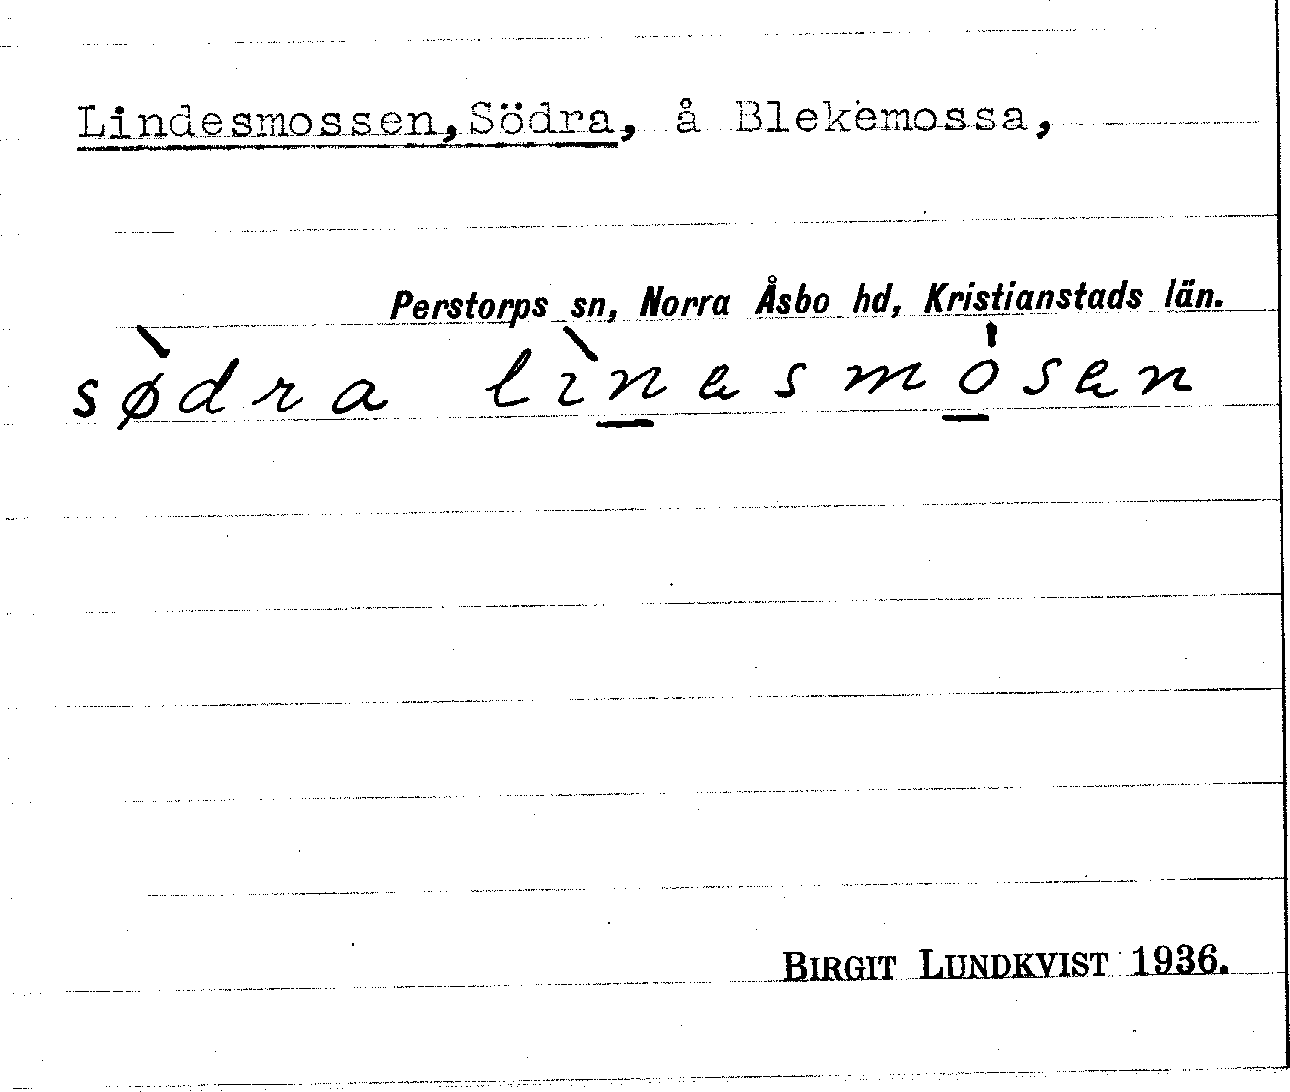 Lindesmossen, Södra, å Blekemossa,
Perstorps sn, Norra Åsbo hd, Kristianstads län.
sø̀dra lìnesmósen
BIRGIT LUNDKVIST 1936.